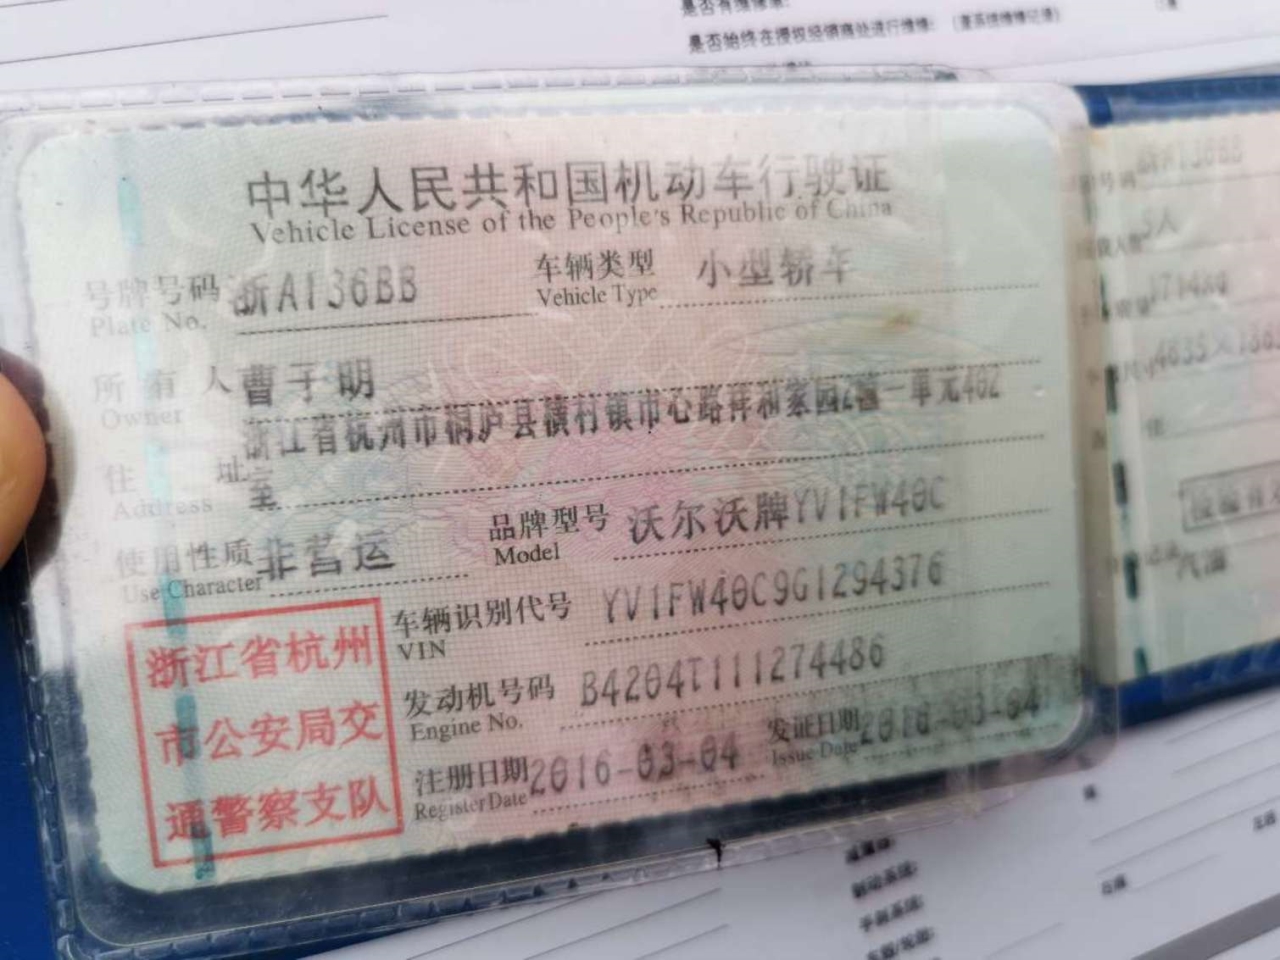 是否始终在授权经销商处进行维修：（查系统维修记录）
中华人民共和国机动车行驶证
Vehicle License of the People's Republic of China
号牌号码 浙A136BB 车辆类型 小型轿车
Plate No. Vehicle Type
所有人 曹子明
Owner
住址 浙江省杭州市桐庐县横村镇市心路祥和家园2幢一单元402
Address 室
使用性质 非营运 品牌型号 沃尔沃牌YV1FW40C
Use Character Model
浙江省杭州
市公安局交
通警察支队
车辆识别代号 YV1FW40C9G1294376
VIN
发动机号码 B4204T111274486
Engine No.
注册日期 2016-03-04 发证日期 2016-03-04
Register Date Issue Date
浙A136BB
5人
汽油
制动系统：
手刹系统：